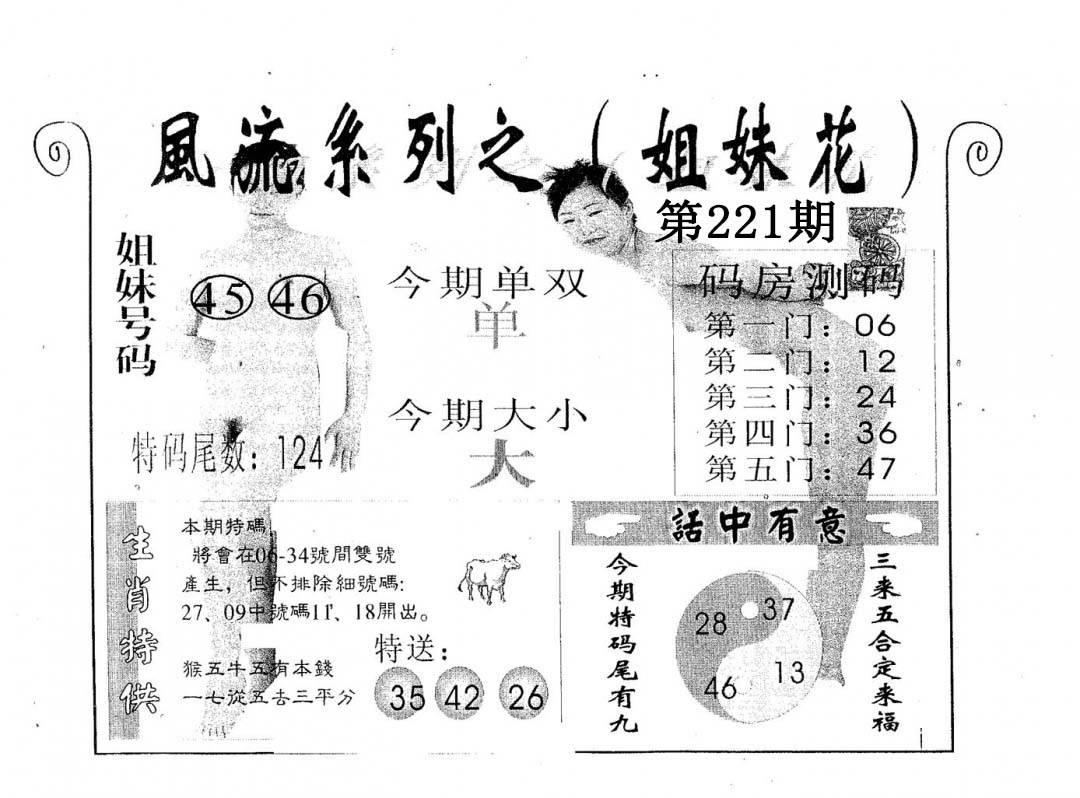 風流系列之（姐妹花）
第221期
姐妹号码
45 46
今期单双
单
今期大小
大
特码尾数：124
码房测码
第一门：06
第二门：12
第三门：24
第四门：36
第五门：47
生肖特供
本期特碼
將會在06-34號間雙號
產生，但不排除細號碼:
27、09中號碼11、18開出。
猴五牛五有本錢
一七從五去三平分
特送：
35 42 26
話中有意
今期特码尾有九
28 37
46 13
三来五合定来福